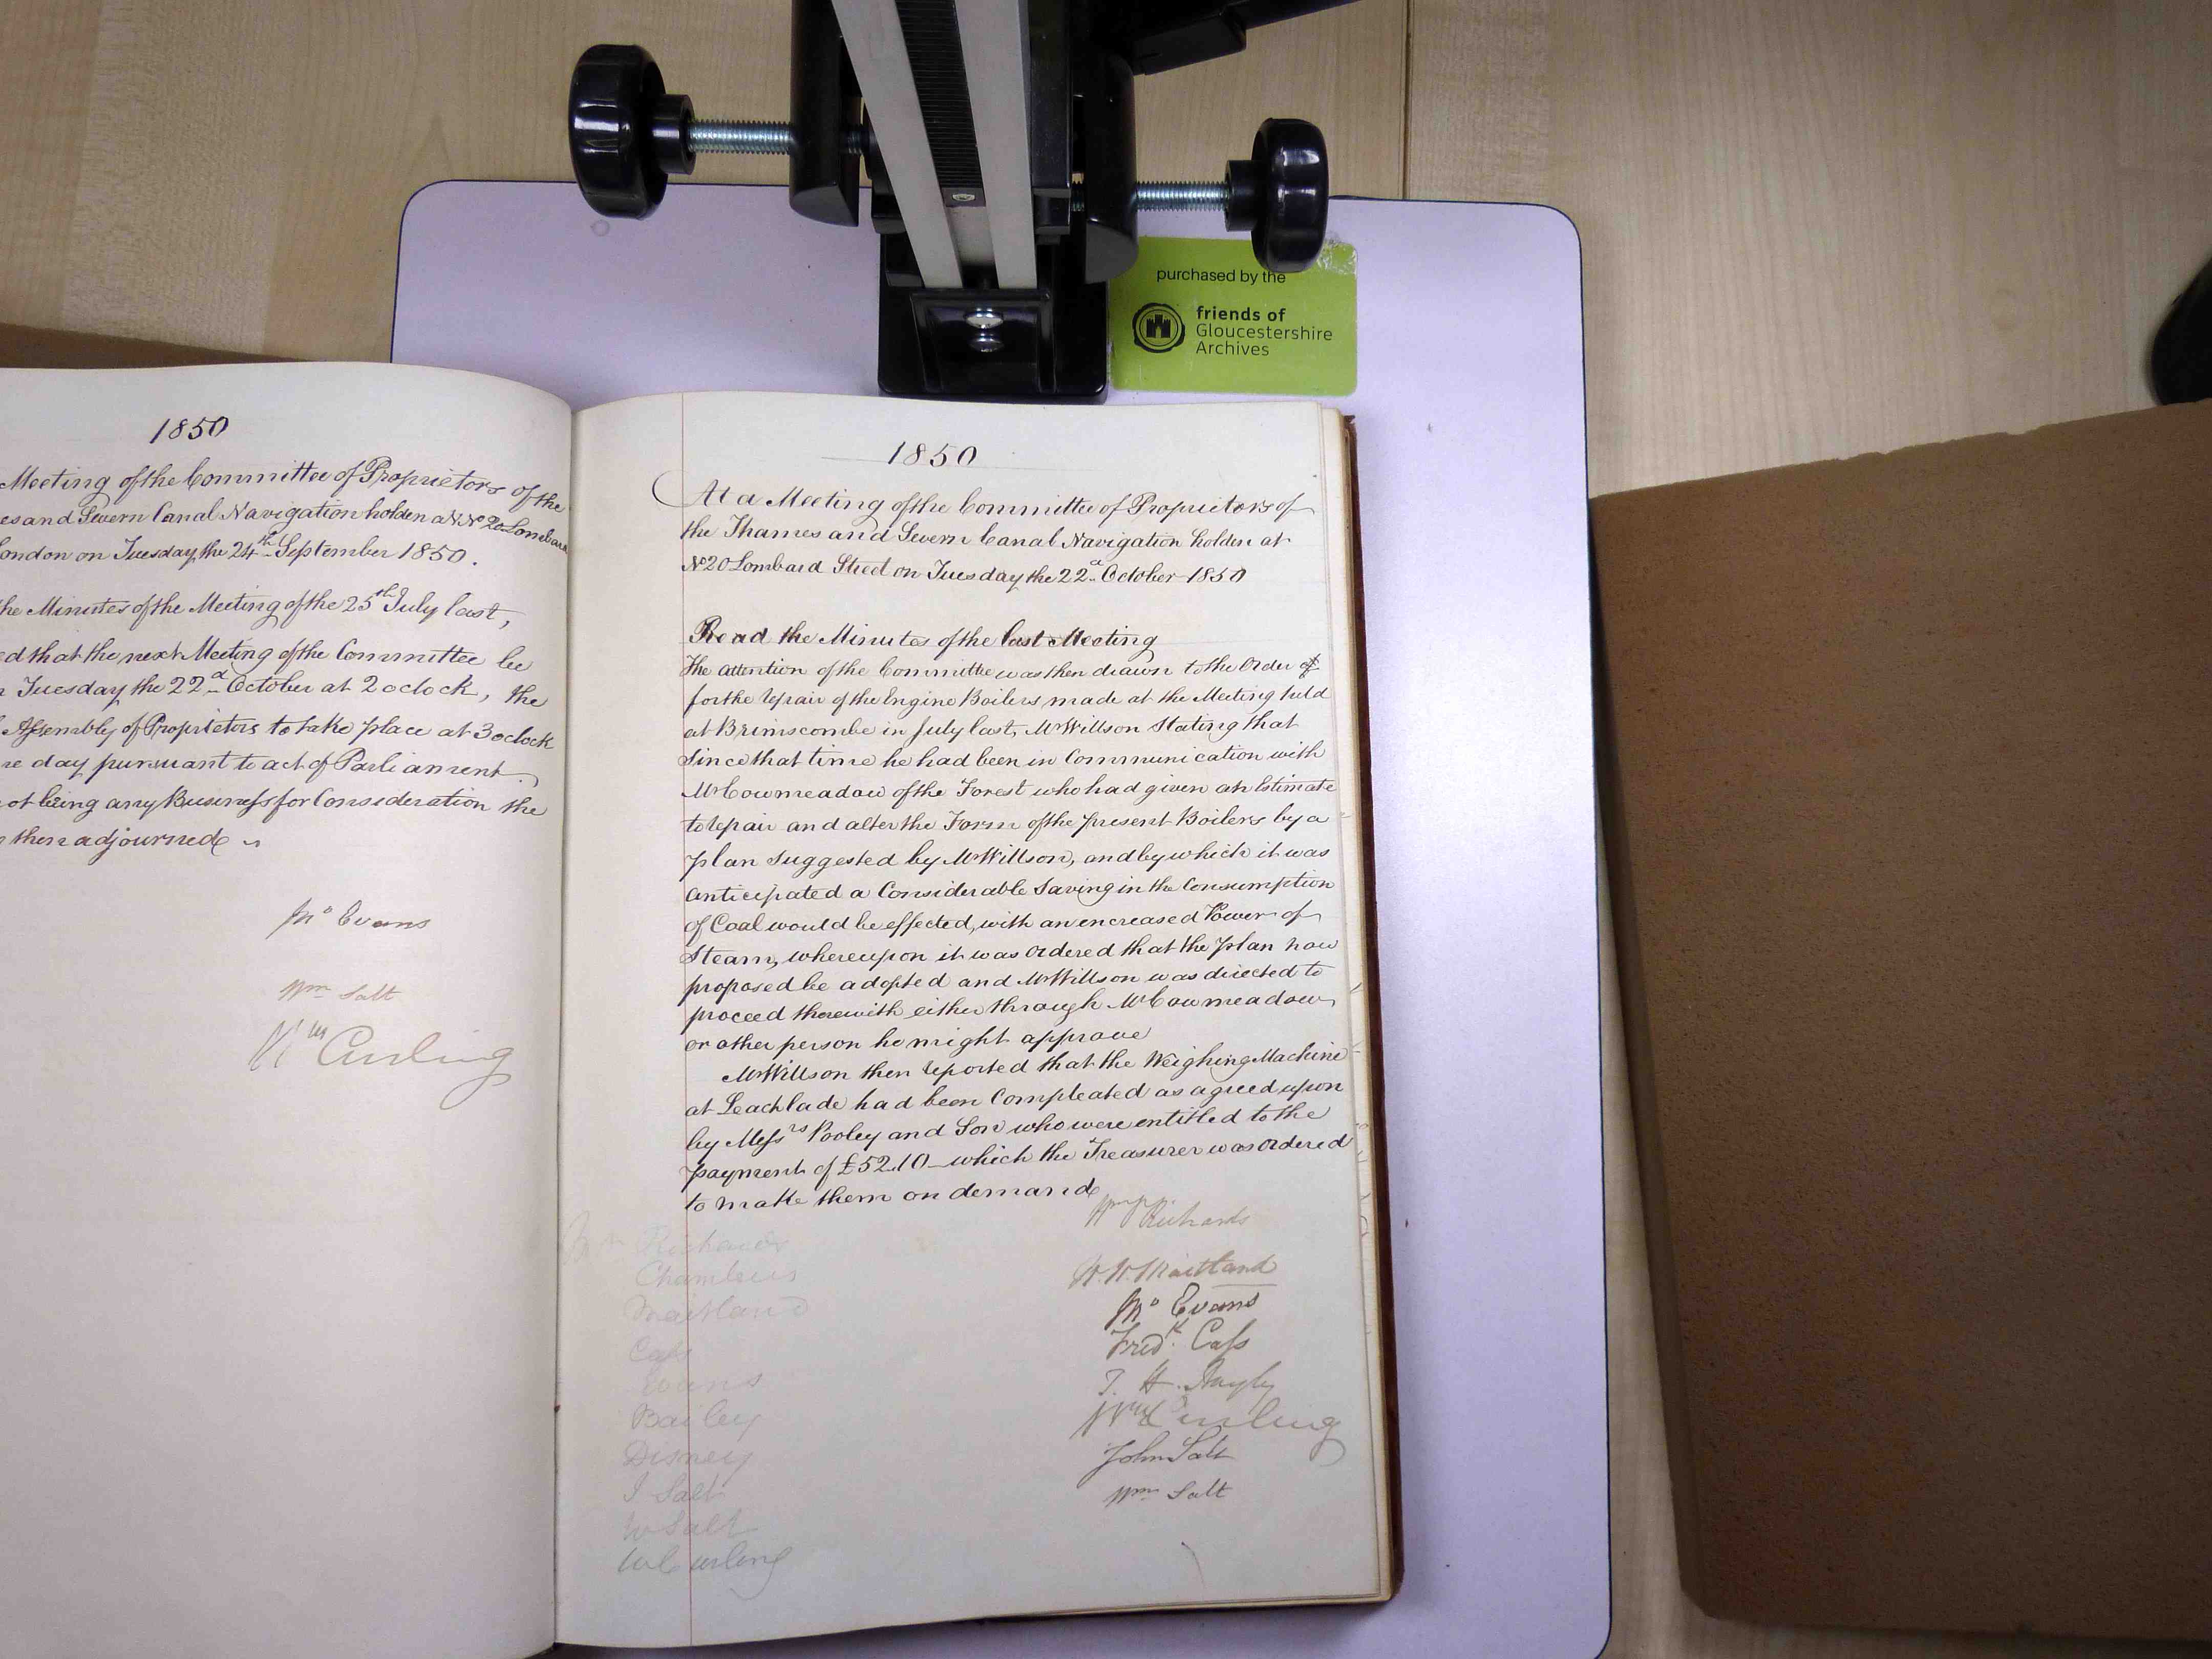 purchased by the
friends of
Gloucestershire
Archives
1850
Meeting of the Committee of Proprietors of the
es and Severn Canal Navigation holden at No 20 Lombard
London on Tuesday the 24th September 1850.
the Minutes of the Meeting of the 25th July last,
ed that the next Meeting of the Committee be
Tuesday the 22d October at 2 oclock, the
Assembly of Proprietors to take place at 3 oclock
me day pursuant to act of Parliament
ot being any Business for Consideration the
then adjourned
Mo Evans
Wm Salt
Wm Curling
1850
At a Meeting of the Committee of Proprietors of
the Thames and Severn Canal Navigation holden at
No 20 Lombard Street on Tuesday the 22d October 1850
Read the Minutes of the last Meeting
The attention of the Committee was then drawn to the Order of
for the repair of the Engine Boilers made at the Meeting held
at Brimscombe in July last, Mr Willson Stating that
Since that time he had been in Communication with
Mr Cowmeadow of the Forest who had given an Estimate
to repair and alter the Form of the present Boilers by a
plan suggested by Mr Willson, and by which it was
anticipated a Considerable Saving in the Consumption
of Coal would be effected, with an encreased Power of
Steam, whereupon it was Ordered that the plan now
proposed be adopted and Mr Willson was directed to
proceed therewith either through Mr Cowmeadow
or other person he might approve
Mr Willson then reported that the Weighing Machine
at Leachlade had been Compleated as agreed upon
by Messrs Pooley and Son who were entitled to the
payment of £52.10 which the Treasurer was Ordered
to make them on demand
Richards
W. W. Maitland
Mo Evans
Fredk. Cass
T. H.
Wm Curling
John Salt
Wm Salt
Richards
Chambers
Maitland
Cass
Evans
Bailey
Disney
J Salt
W Salt
W Curling